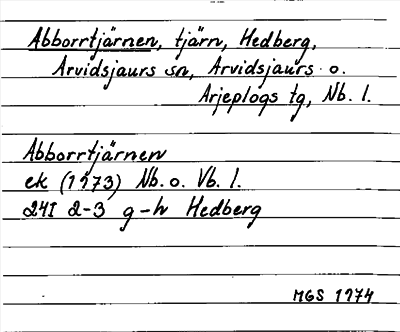 Abborrtjärnen, tjärn, Hedberg,
Arvidsjaurs sn, Arvidsjaurs o.
Arjeplogs tg, Nb. l.
Abborrtjärnen
ek (1973) Nb. o. Vb. l.
24I 2-3 g-h Hedberg
MGS 1974